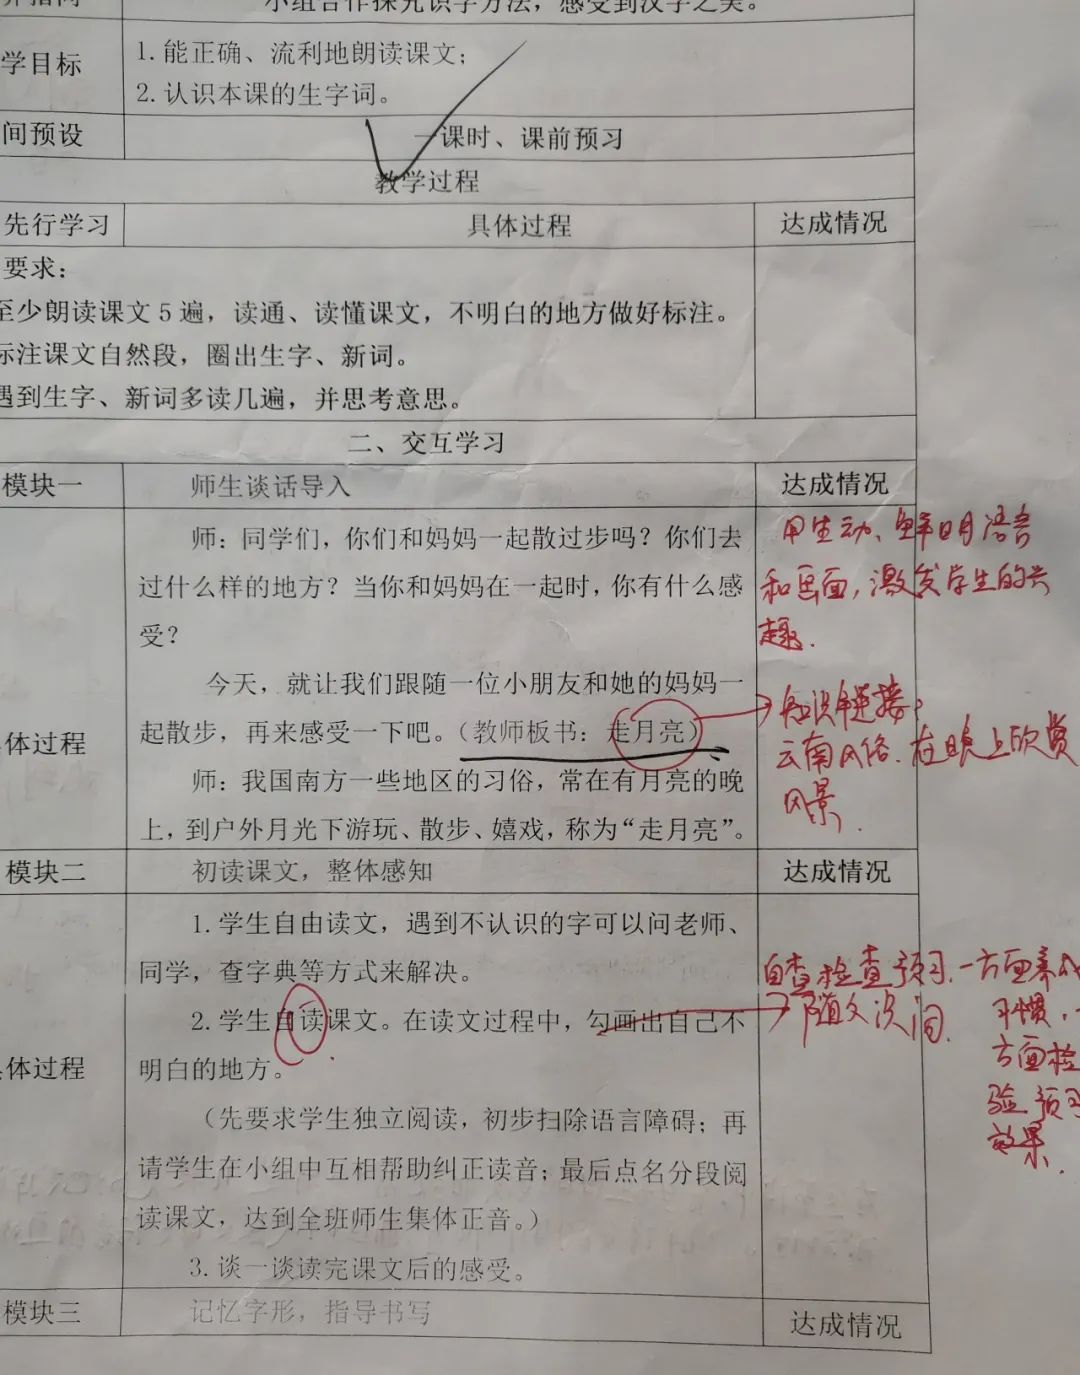 小组合作探究识字方法，感受到汉字之美。
学目标
1.能正确、流利地朗读课文；
2.认识本课的生字词。
间预设
一课时、课前预习
教学过程
先行学习 具体过程 达成情况
要求：
至少朗读课文5遍，读通、读懂课文，不明白的地方做好标注。
标注课文自然段，圈出生字、新词。
遇到生字、新词多读几遍，并思考意思。
二、交互学习
模块一 师生谈话导入 达成情况
体过程
师：同学们，你们和妈妈一起散过步吗？你们去
过什么样的地方？当你和妈妈在一起时，你有什么感
受？
今天，就让我们跟随一位小朋友和她的妈妈一
起散步，再来感受一下吧。（教师板书：走月亮）
师：我国南方一些地区的习俗，常在有月亮的晚
上，到户外月光下游玩、散步、嬉戏，称为“走月亮”。
用生动、鲜明语言
和画面，激发学生的兴
趣.
知识链接：
云南风俗.在晚上欣赏
风景.
模块二 初读课文，整体感知 达成情况
体过程
1.学生自由读文，遇到不认识的字可以问老师、
同学，查字典等方式来解决。
2.学生自读课文。在读文过程中，勾画出自己不
明白的地方。
（先要求学生独立阅读，初步扫除语言障碍；再
请学生在小组中互相帮助纠正读音；最后点名分段阅
读课文，达到全班师生集体正音。）
3.谈一谈读完课文后的感受。
自查检查预习.一方面养成
习惯，一
方面检
验预习
效果.
随文识词.
模块三 记忆字形，指导书写 达成情况